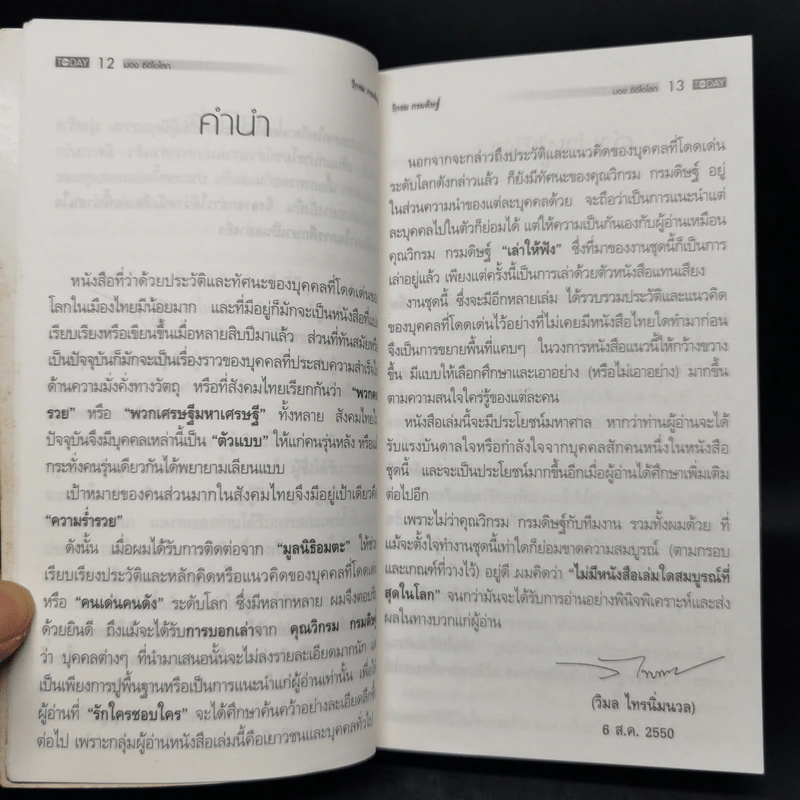 TODAY 12 มอง ซีอีโอโลก
วิกรม กรมดิษฐ์
คำนำ
หนังสือที่ว่าด้วยประวัติและทัศนะของบุคคลที่โดดเด่นของ
โลกในเมืองไทยมีน้อยมาก และที่มีอยู่ก็มักจะเป็นหนังสือที่
เรียบเรียงหรือเขียนขึ้นเมื่อหลายสิบปีมาแล้ว ส่วนที่ทันสมัย
เป็นปัจจุบันก็มักจะเป็นเรื่องราวของบุคคลที่ประสบความสำเร็จ
ด้านความมั่งคั่งทางวัตถุ หรือที่สังคมไทยเรียกกันว่า
รวย" หรือ "พวกเศรษฐีมหาเศรษฐี" ทั้งหลาย สังคมไทย
ปัจจุบันจึงมีบุคคลเหล่านี้เป็น "ตัวแบบ" ให้แก่คนรุ่นหลัง
กระทั่งคนรุ่นเดียวกันได้พยายามเลียนแบบ
เป้าหมายของคนส่วนมากในสังคมไทยจึงมีอยู่เป้าเดียวคือ
"ความร่ำรวย"
ดังนั้น เมื่อผมได้รับการติดต่อจาก "มูลนิธิอมตะ"
เรียบเรียงประวัติและหลักคิดหรือแนวคิดของบุคคลที่โดดเด่น
หรือ "คนเด่นคนดัง" ระดับโลก ซึ่งมีหลากหลาย ผมจึง
ด้วยยินดี ถึงแม้จะได้รับการบอกเล่าจาก คุณวิกรม กรมดิษฐ์
ว่า บุคคลต่างๆ ที่นำมาเสนอนั้นจะไม่ลงรายละเอียดมากนัก
เป็นเพียงการปูพื้นฐานหรือเป็นการแนะนำแก่ผู้อ่านเท่านั้น
ผู้อ่านที่ "รักใครชอบใคร" จะได้ศึกษาค้นคว้าอย่างละเอียด
ต่อไป เพราะกลุ่มผู้อ่านหนังสือเล่มนี้คือเยาวชนและบุคคลทั่วไป
มอง ซีอีโอโลก 13 TODAY
วิกรม กรมดิษฐ์
นอกจากจะกล่าวถึงประวัติและแนวคิดของบุคคลที่โดดเด่น
ระดับโลกดังกล่าวแล้ว ก็ยังมีทัศนะของคุณวิกรม กรมดิษฐ์ อยู่
ในส่วนความนำของแต่ละบุคคลด้วย จะถือว่าเป็นการแนะนำแต่
ละบุคคลไปในตัวก็ย่อมได้ แต่ให้ความเป็นกันเองกับผู้อ่านเหมือน
คุณวิกรม กรมดิษฐ์ "เล่าให้ฟัง" ซึ่งที่มาของงานชุดนี้ก็เป็นการ
เล่าอยู่แล้ว เพียงแต่ครั้งนี้เป็นการเล่าด้วยตัวหนังสือแทนเสียง
งานชุดนี้ ซึ่งจะมีอีกหลายเล่ม ได้รวบรวมประวัติและแนวคิด
ของบุคคลที่โดดเด่นไว้อย่างที่ไม่เคยมีหนังสือไทยใดทำมาก่อน
จึงเป็นการขยายพื้นที่แคบๆ ในวงการหนังสือแนวนี้ให้กว้างขวาง
ขึ้น มีแบบให้เลือกศึกษาและเอาอย่าง (หรือไม่เอาอย่าง) มากขึ้น
ตามความสนใจใคร่รู้ของแต่ละคน
หนังสือเล่มนี้จะมีประโยชน์มหาศาล หากว่าท่านผู้อ่านจะได้
รับแรงบันดาลใจหรือกำลังใจจากบุคคลสักคนหนึ่งในหนังสือ
ชุดนี้ และจะเป็นประโยชน์มากขึ้นอีกเมื่อผู้อ่านได้ศึกษาเพิ่มเติม
ต่อไปอีก
เพราะไม่ว่าคุณวิกรม กรมดิษฐ์กับทีมงาน รวมทั้งผมด้วย ที่
แม้จะตั้งใจทำงานชุดนี้เท่าใดก็ย่อมขาดความสมบูรณ์ (ตามกรอบ
และเกณฑ์ที่วางไว้) อยู่ดี ผมคิดว่า "ไม่มีหนังสือเล่มใดสมบูรณ์ที่
สุดในโลก" จนกว่ามันจะได้รับการอ่านอย่างพินิจพิเคราะห์และส่ง
ผลในทางบวกแก่ผู้อ่าน
(วิมล ไทรนิ่มนวล)
6 ส.ค. 2550